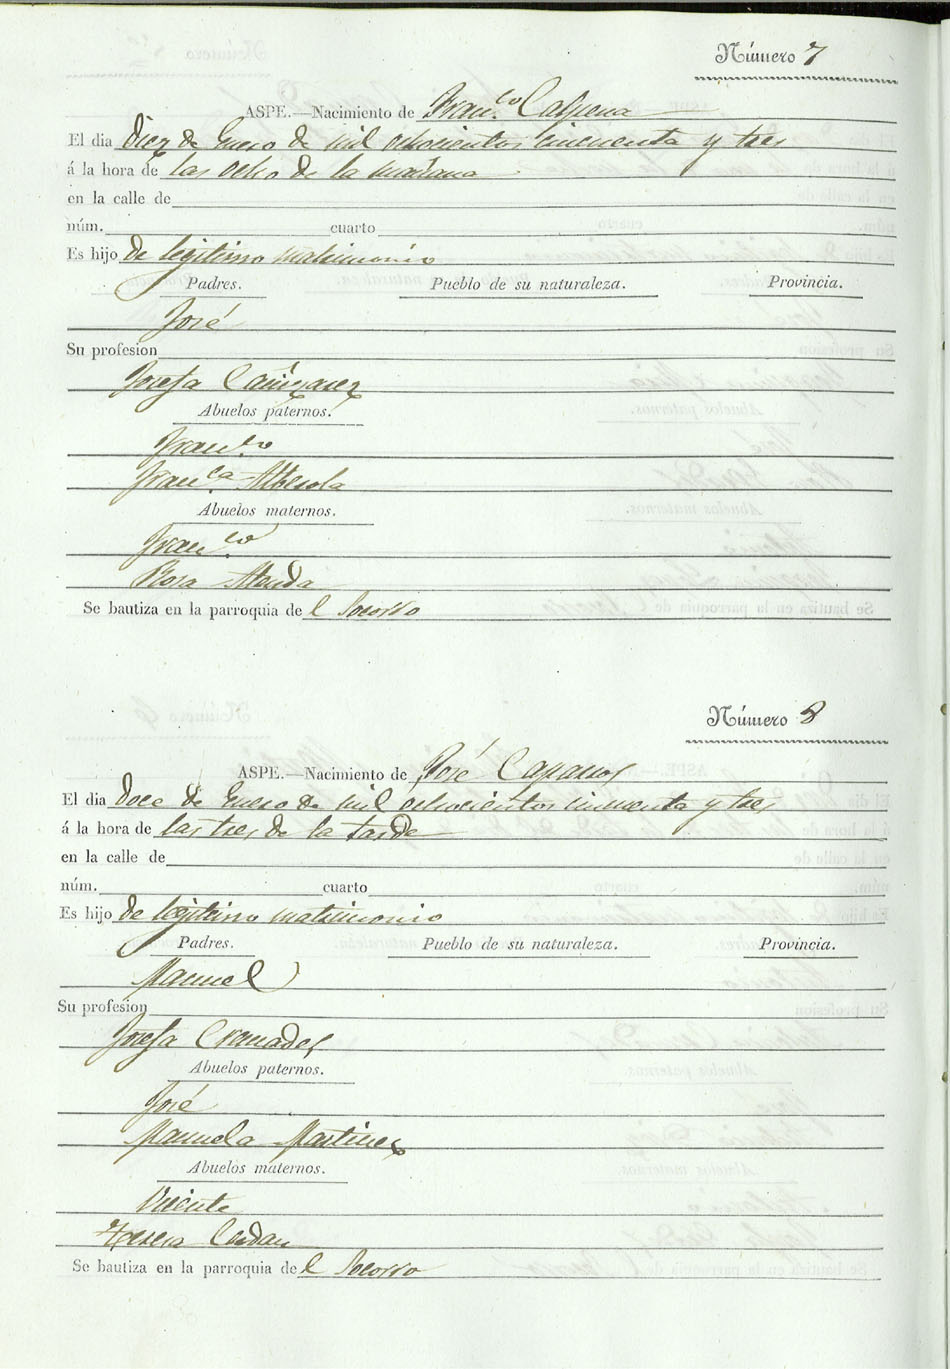 Número 7
ASPE.—Nacimiento de Fran.co Calpena
El dia Diez de Enero de mil ochocientos cincuenta y tres
á la hora de las ocho de la mañana
en la calle de
núm. cuarto
Es hijo de legitimo matrimonio
Padres. Pueblo de su naturaleza. Provincia.
José
Su profesion
Josefa Cañizarez
Abuelos paternos.
Fran.co
Fran.ca Alberola
Abuelos maternos.
Fran.co
Rosa
Se bautiza en la parroquia de l Socorro
Número 8
ASPE.—Nacimiento de José Caparros
El dia Doce de Enero de mil ochocientos cincuenta y tres
á la hora de las tres de la tarde
en la calle de
núm. cuarto
Es hijo de legitimo matrimonio
Padres. Pueblo de su naturaleza. Provincia.
Manuel
Su profesion
Josefa Cremades
Abuelos paternos.
José
Manuela Martinez
Abuelos maternos.
Vicente
Teresa Cerdan
Se bautiza en la parroquia de l Socorro